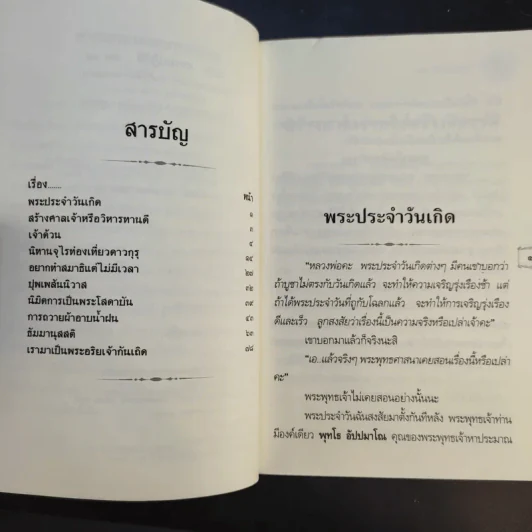 สารบัญ
เรื่อง...... หน้า
พระประจำวันเกิด ๑
สร้างศาลเจ้าหรือวิหารทานดี ๓
เจ้าด้วน ๔
นิทานจุไรท่องเที่ยวดาวกุรุ ๑๔
อยากทำสมาธิแต่ไม่มีเวลา ๒๘
ปุพเพสันนิวาส ๓๒
นิมิตการเป็นพระโสดาบัน ๓๙
การถวายผ้าอาบน้ำฝน ๔๓
ธัมมานุสสติ ๖๓
เรามาเป็นพระอริยเจ้ากันเถิด ๗๘
พระประจำวันเกิด
"หลวงพ่อคะ พระประจำวันเกิดต่างๆ มีคนเขาบอกว่า
ถ้าบูชาไม่ตรงกับวันเกิดแล้ว จะทำให้ความเจริญรุ่งเรืองช้า แต่
ถ้าได้พระประจำวันที่ถูกกับโฉลกแล้ว จะทำให้การเจริญรุ่งเรือง
ดีและเร็ว ลูกสงสัยว่าเรื่องนี้เป็นความจริงหรือเปล่าเจ้าคะ"
เขาบอกมาแล้วก็จริงนะสิ
"เอ..แล้วจริงๆ พระพุทธศาสนาเคยสอนเรื่องนี้หรือเปล่า
คะ"
พระพุทธเจ้าไม่เคยสอนอย่างนั้นนะ
พระประจำวันฉันสงสัยมาตั้งกันทีหลัง พระพุทธเจ้าท่าน
มีองค์เดียว พุทโธ อัปปมาโณ คุณของพระพุทธเจ้าหาประมาณ